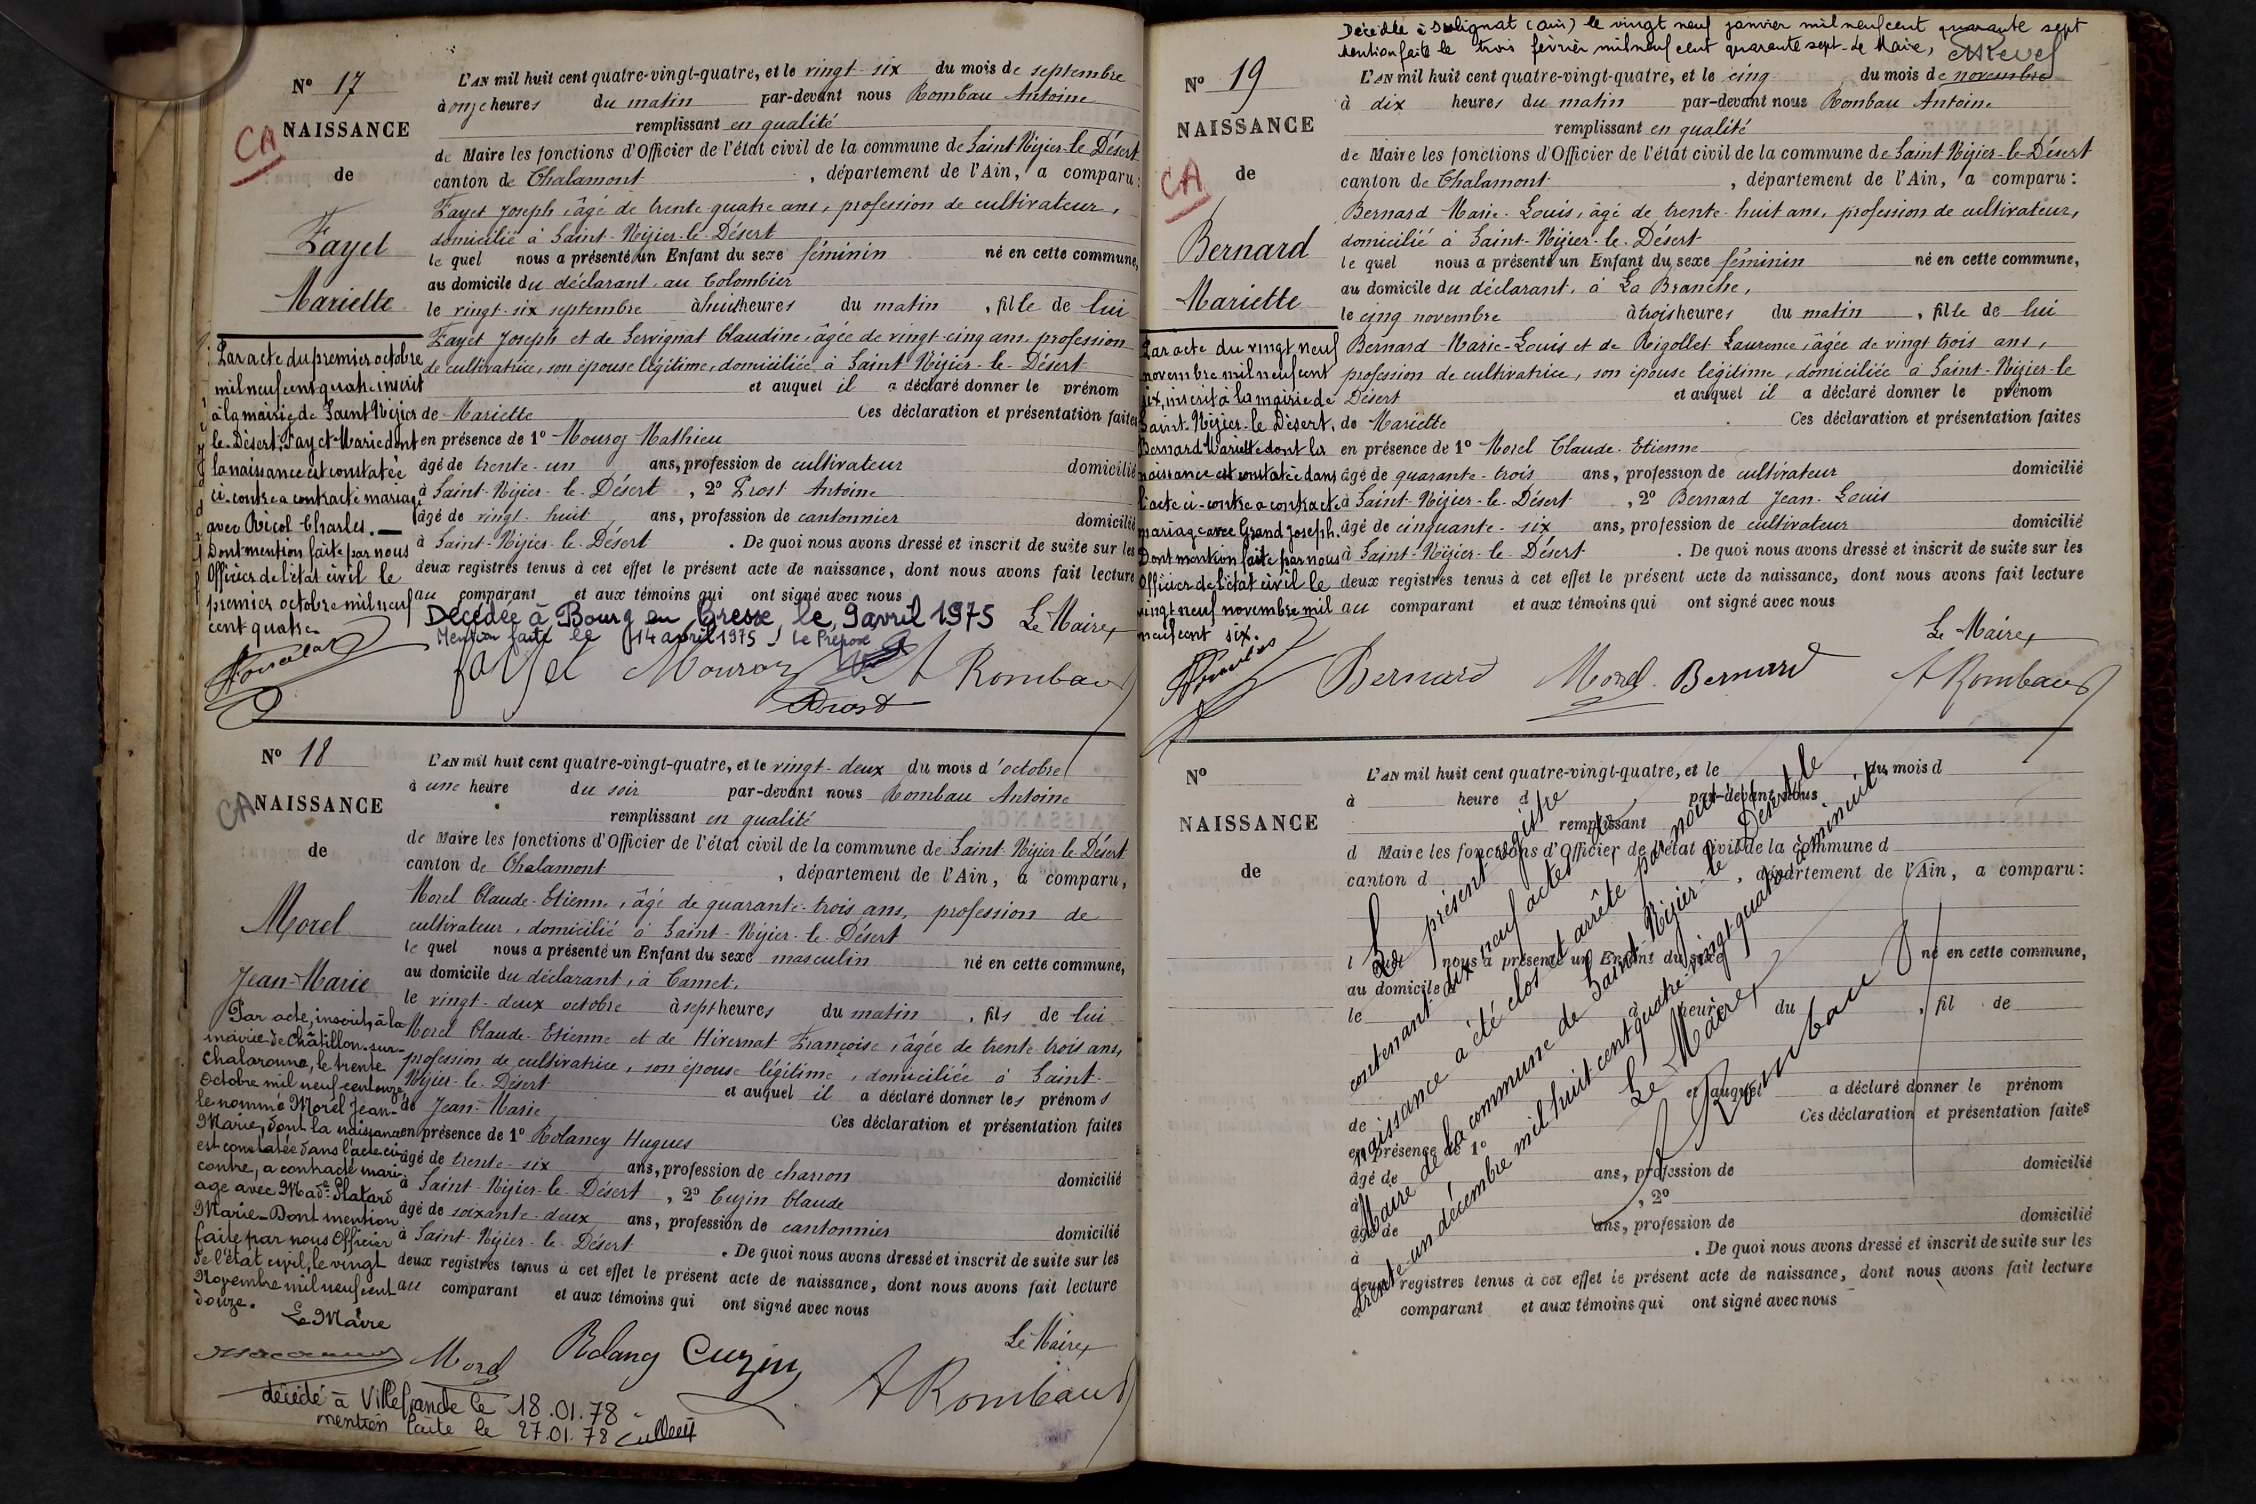 Nº 17
NAISSANCE
de
Fayet
Mariette
CA
L'AN mil huit cent quatre-vingt-quatre, et le vingt-six du mois de septembre
à onze heures du matin par-devant nous Rombau Antoine
remplissant en qualité
de Maire les fonctions d'Officier de l'état civil de la commune de Saint-Nizier-le-Désert
canton de Chalamont, département de l'Ain, a comparu:
Fayet Joseph, âgé de trente-quatre ans, profession de cultivateur,
domicilié à Saint-Nizier-le-Désert
le quel nous a présenté un Enfant du sexe féminin né en cette commune,
au domicile du déclarant, au Colombier
le vingt-six septembre à huit heures du matin, fille de lui
Fayet Joseph et de Servignat Claudine, âgée de vingt-cinq ans, profession
de cultivatrice, son épouse légitime, domiciliée à Saint-Nizier-le-Désert
et auquel il a déclaré donner le prénom
de Mariette Ces déclaration et présentation faites
en présence de 1º Mouroz Mathieu
âgé de trente-un ans, profession de cultivateur domicilié
à Saint-Nizier-le-Désert, 2º Prost Antoine
âgé de vingt-huit ans, profession de cantonnier domicilié
à Saint-Nizier-le-Désert. De quoi nous avons dressé et inscrit de suite sur les
deux registres tenus à cet effet le présent acte de naissance, dont nous avons fait lecture
au comparant et aux témoins qui ont signé avec nous
Le Maire,
Décédée à Bourg en Bresse le 9 avril 1975
Mention faite le 14 avril 1975 Le Préposé
Fayet Mouroz A Rombau
Prost
Par acte du premier octobre
mil neuf cent quatre inscrit
à la mairie de Saint Nizier
le-Désert, Fayet Marie dont
la naissance est constatée
ci-contre a contracté mariage
avec Nicol Charles.
Dont mention faite par nous
Officier de l'état civil le
premier octobre mil neuf
cent quatre
Nº 18
NAISSANCE
de
Morel
Jean-Marie
CA
L'AN mil huit cent quatre-vingt-quatre, et le vingt-deux du mois d'octobre
à une heure du soir par-devant nous Rombau Antoine
remplissant en qualité
de Maire les fonctions d'Officier de l'état civil de la commune de Saint-Nizier-le-Désert
canton de Chalamont, département de l'Ain, a comparu,
Morel Claude-Etienne, âgé de quarante-trois ans, profession de
cultivateur, domicilié à Saint-Nizier-le-Désert
le quel nous a présenté un Enfant du sexe masculin né en cette commune,
au domicile du déclarant, à Camet,
le vingt-deux octobre à sept heures du matin, fils de lui
Morel Claude-Etienne et de Hivernat Françoise, âgée de trente trois ans,
profession de cultivatrice, son épouse légitime, domiciliée à Saint-
Nizier-le-Désert et auquel il a déclaré donner les prénoms
de Jean-Marie Ces déclaration et présentation faites
en présence de 1º Rolancy Hugues
âgé de trente-six ans, profession de charron domicilié
à Saint-Nizier-le-Désert, 2º Cuzin Claude
âgé de soixante-deux ans, profession de cantonnier domicilié
à Saint-Nizier-le-Désert. De quoi nous avons dressé et inscrit de suite sur les
deux registres tenus à cet effet le présent acte de naissance, dont nous avons fait lecture
au comparant et aux témoins qui ont signé avec nous
Le Maire,
Morel Rolancy Cuzin A Rombau
Par acte, inscrit, à la
mairie de Châtillon-sur-
Chalaronne, le trente
Octobre mil neuf cent onze
le nommé Morel Jean-
Marie, dont la naissance
est constatée dans l'acte ci-
contre, a contracté mari-
age avec Made Platard
Marie_Dont mention
faite par nous Officier
de l'état civil, le vingt
Novembre mil neuf cent
douze.
Le Maire
décédé à Villefranche le 18.01.78
mention faite le 27.01.78
Décédée à Sulignat (Ain) le vingt neuf janvier mil neuf cent quarante sept
Mention faite le trois février mil neuf cent quarante sept - Le Maire,
Nº 19
NAISSANCE
de
Bernard
Mariette
CA
L'AN mil huit cent quatre-vingt-quatre, et le cinq du mois de novembre
à dix heures du matin par-devant nous Rombau Antoine
remplissant en qualité
de Maire les fonctions d'Officier de l'état civil de la commune de Saint-Nizier-le-Désert
canton de Chalamont, département de l'Ain, a comparu:
Bernard Marie-Louis, âgé de trente-huit ans, profession de cultivateur,
domicilié à Saint-Nizier-le-Désert
le quel nous a présenté un Enfant du sexe féminin né en cette commune,
au domicile du déclarant, à La Branche,
le cinq novembre à trois heures du matin, fille de lui
Bernard Marie-Louis et de Rigollet Laurence, âgée de vingt trois ans,
profession de cultivatrice, son épouse légitime, domiciliée à Saint-Nizier-le
Désert et auquel il a déclaré donner le prénom
de Mariette Ces déclaration et présentation faites
en présence de 1º Morel Claude-Etienne
âgé de quarante-trois ans, profession de cultivateur domicilié
à Saint-Nizier-le-Désert, 2º Bernard Jean-Louis
âgé de cinquante-six ans, profession de cultivateur domicilié
à Saint-Nizier-le-Désert. De quoi nous avons dressé et inscrit de suite sur les
deux registres tenus à cet effet le présent acte de naissance, dont nous avons fait lecture
au comparant et aux témoins qui ont signé avec nous
Le Maire,
Bernard Morel Bernard A Rombau
Par acte du vingt neuf
novembre mil neuf cent
six, inscrit à la mairie de
Saint-Nizier-le-Désert,
Bernard Mariette dont la
naissance est constatée dans
l'acte ci-contre a contracté
mariage avec Grand Joseph.
Dont mention faite par nous
Officier de l'état civil le
vingt neuf novembre mil
neuf cent six.
Nº
NAISSANCE
de
L'AN mil huit cent quatre-vingt-quatre, et le du mois d
à heure d par-devant nous
remplissant
d Maire les fonctions d'Officier de l'état civil de la commune d
canton d , département de l'Ain, a comparu:
l quel nous a présenté un Enfant du sexe né en cette commune,
au domicile d
le à heure du , fil de
et auquel a déclaré donner le prénom
de Ces déclaration et présentation faites
en présence de 1º
âgé de ans, profession de domicilié
à , 2º
âgé de ans, profession de domicilié
à . De quoi nous avons dressé et inscrit de suite sur les
deux registres tenus à cet effet le présent acte de naissance, dont nous avons fait lecture
comparant et aux témoins qui ont signé avec nous
Le présent registre
contenant dix neuf actes de
naissance a été clos et arrêté par nous
Maire de la commune de Saint-Nizier-le-Désert le
trente-un décembre mil huit cent quatre-vingt quatre à minuit
Le Maire,
A Rombau